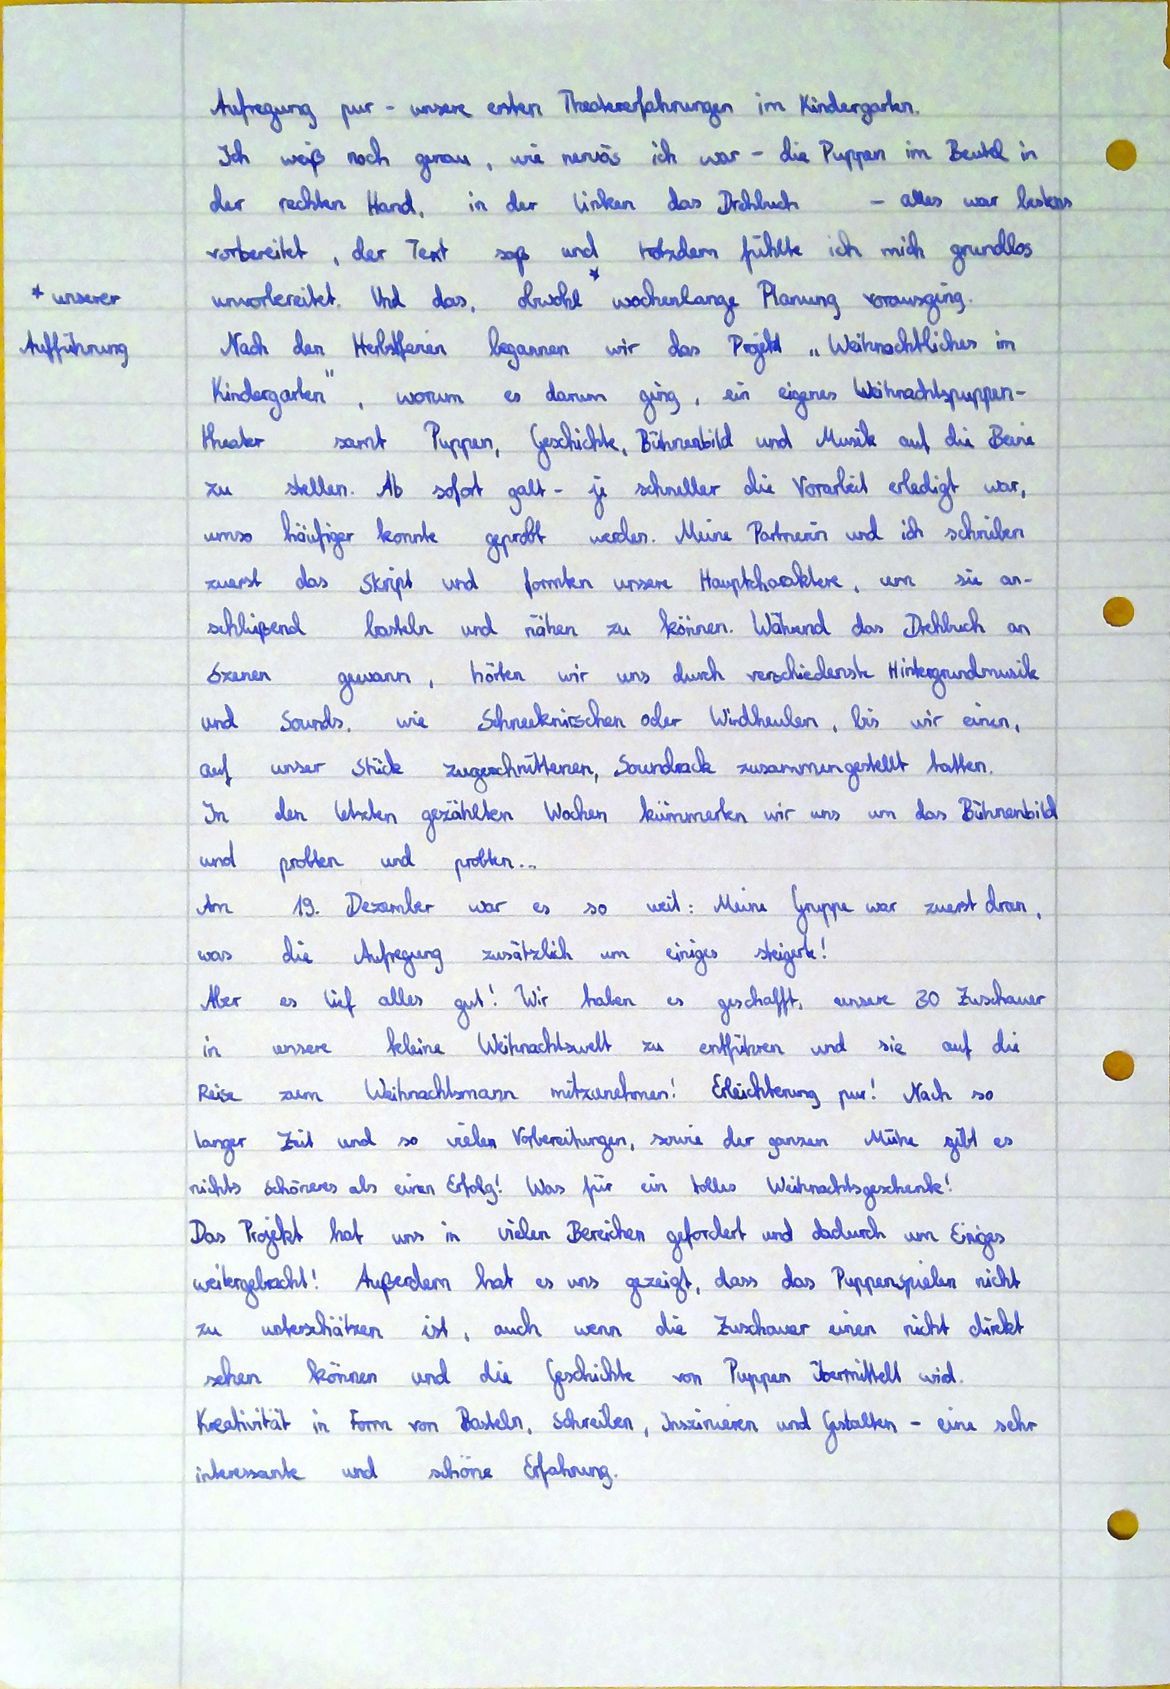 Aufregung pur - unsere ersten Theatererfahrungen im Kindergarten.
Ich weiß noch genau, wie nervös ich war - die Puppen im Beutel in
der rechten Hand, in der linken das Drehbuch - alles war bestens
vorbereitet, der Text saß und trotzdem fühlte ich mich grundlos
* unserer
Aufführung
unvorbereitet. Und das, obwohl * wochenlange Planung vorausging.
Nach den Herbstferien begannen wir das Projekt „Weihnachtliches im
Kindergarten", worum es darum ging, ein eigenes Weihnachtspuppen-
theater samt Puppen, Geschichte, Bühnenbild und Musik auf die Beine
zu stellen. Ab sofort galt - je schneller die Vorarbeit erledigt war,
umso häufiger konnte geprobt werden. Meine Partnerin und ich schrieben
zuerst das Skript und formten unsere Hauptcharaktere, um sie an-
schließend basteln und nähen zu können. Während das Drehbuch an
Szenen gewann, hörten wir uns durch verschiedenste Hintergrundmusik
und Sounds, wie Schneeknirschen oder Windheulen, bis wir einen,
auf unser Stück zugeschnittenen, Soundrack zusammengestellt hatten.
In den letzten gezählten Wochen kümmerten wir uns um das Bühnenbild
und probten und probten...
Am 19. Dezember war es so weit: Meine Gruppe war zuerst dran,
was die Aufregung zusätzlich um einiges steigerte!
Aber es lief alles gut! Wir haben es geschafft, unsere 30 Zuschauer
in unsere kleine Weihnachtswelt zu entführen und sie auf die
Reise zum Weihnachtsmann mitzunehmen! Erleichterung pur! Nach so
langer Zeit und so vielen Vorbereitungen, sowie der ganzen Mühe gibt es
nichts schöneres als einen Erfolg! Was für ein tolles Weihnachtsgeschenk!
Das Projekt hat uns in vielen Bereichen gefordert und dadurch um Einiges
weitergebracht! Außerdem hat es uns gezeigt, dass das Puppenspielen nicht
zu unterschätzen ist, auch wenn die Zuschauer einen nicht direkt
sehen können und die Geschichte von Puppen übermittelt wird.
Kreativität in Form von Basteln, Schreiben, Inszinieren und Gestalten - eine sehr
interessante und schöne Erfahrung.